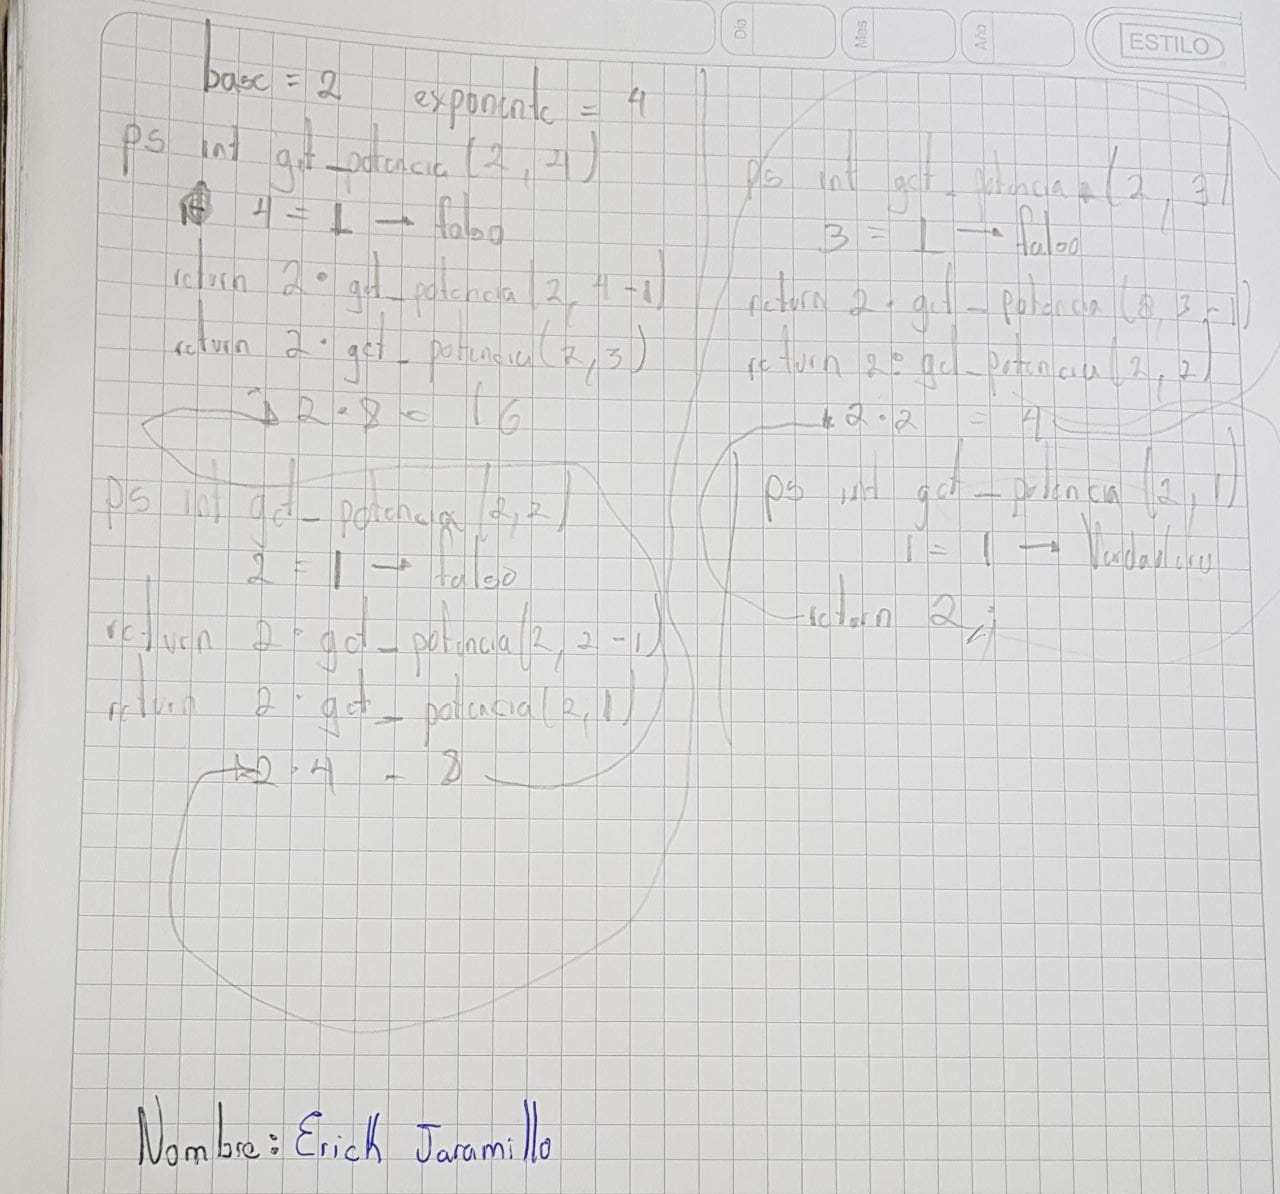 Dia Mes Año ESTILO
base = 2 exponente = 4
ps int get_potencia (2, 4)
4 = 1 → falso
return 2 · get_potencia (2, 4-1)
return 2 · get_potencia (2, 3)
→ 2 · 8 = 16
ps int get_potencia (2, 2)
2 = 1 → falso
return 2 · get_potencia (2, 2-1)
return 2 · get_potencia (2, 1)
→ 2 · 4 = 8
ps int get_potencia (2, 3)
3 = 1 → falso
return 2 · get_potencia (2, 3-1)
return 2 · get_potencia (2, 2)
→ 2 · 2 = 4
ps int get_potencia (2, 1)
1 = 1 → Verdadero
return 2;
Nombre: Erick Jaramillo